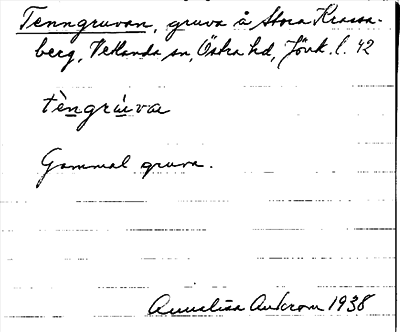 Tenngruvan, gruva å Stora Krassa-
berg, Vetlanda sn, Östra hd, Jönk. l. 42
tèngrùva
Gammal gruva.
Annalisa 1938